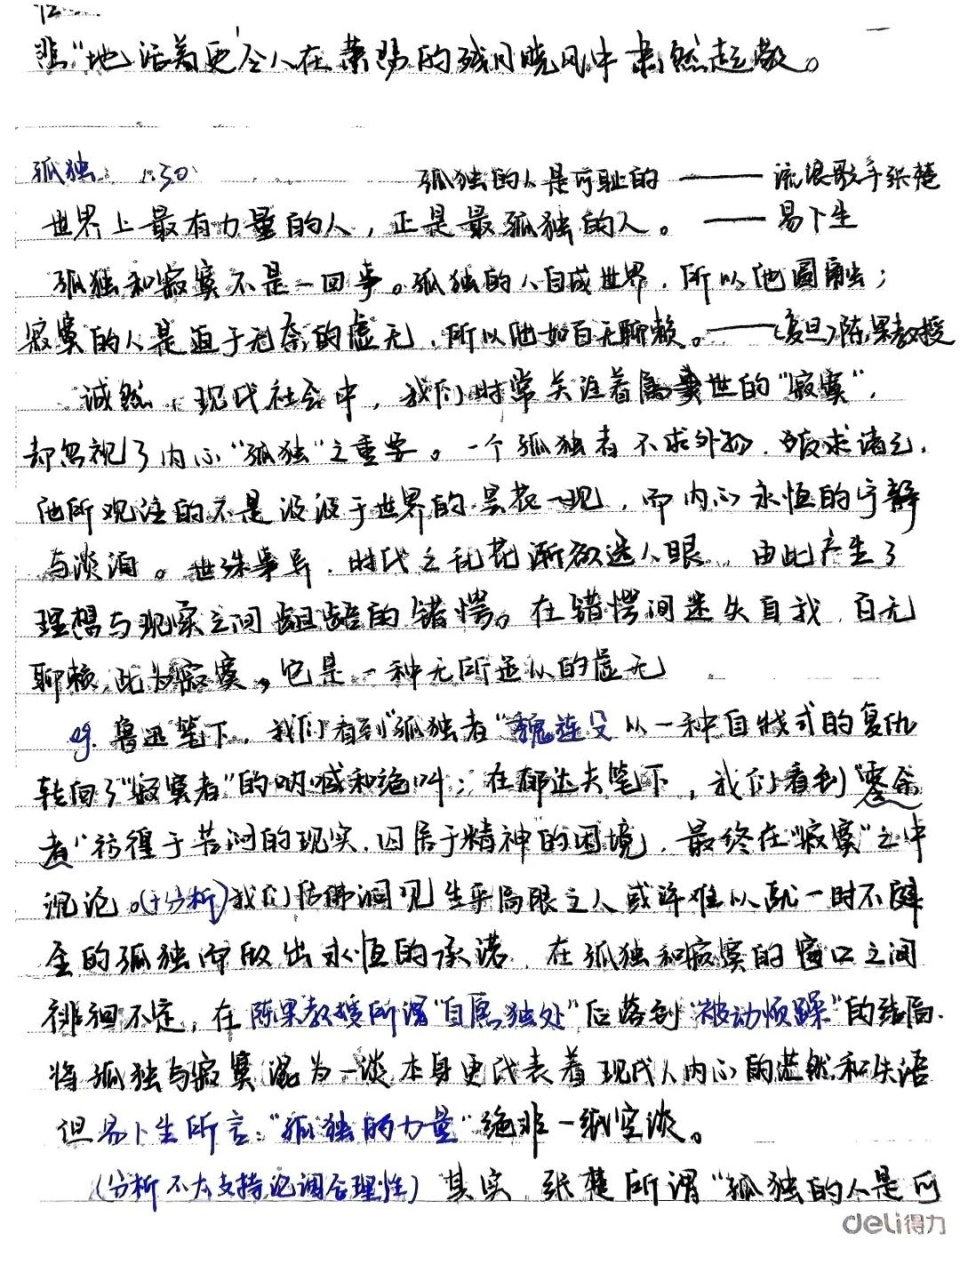 12
悲"地活着更令人在萧瑟的残月晓风中肃然起敬。
孤独: 1:30
孤独的人是可耻的 —— 流浪歌手张楚
世界上最有力量的人，正是最孤独的人。 —— 易卜生
孤独和寂寞不是一回事。孤独的人自成世界，所以他圆融；
寂寞的人是迫于无奈的虚无，所以他如百无聊赖。——(复旦)陈果教授
诚然，现代社会中，我们时常关注着属世的"寂寞"，
却忽视了内心"孤独"之重要。一个孤独者不求外物，反求诸己，
他所观注的不是汲汲于世界的昙花一现，而内心永恒的宁静
与淡泊。世殊事异，时代之乱花渐欲迷人眼，由此产生了
理想与现实之间龃龉的错愕。在错愕间迷失自我，百无
聊赖，此为寂寞，它是一种无所适从的虚无
eg. 鲁迅笔下，我们看到"孤独者"魏连殳从一种自戕式的复仇
转向了"寂寞者"的呐喊和绝叫；在郁达夫笔下，我们看到"零余
者"彷徨于苦闷的现实，囚居于精神的困境，最终在"寂寞"之中
沉沦。(+分析)我们仿佛洞见生平局限之人或许难以就一时不健
全的孤独而做出永恒的承诺，在孤独和寂寞的窗口之间
徘徊不定，在陈果教授所谓"自愿独处"后落到"被动烦躁"的结局.
将孤独与寂寞混为一谈本身更代表着现代人内心的茫然和失语
但易卜生所言："孤独的力量"绝非一纸空谈。
(分析不大支持论调合理性) 其实，张楚所谓"孤独的人是可
deli得力